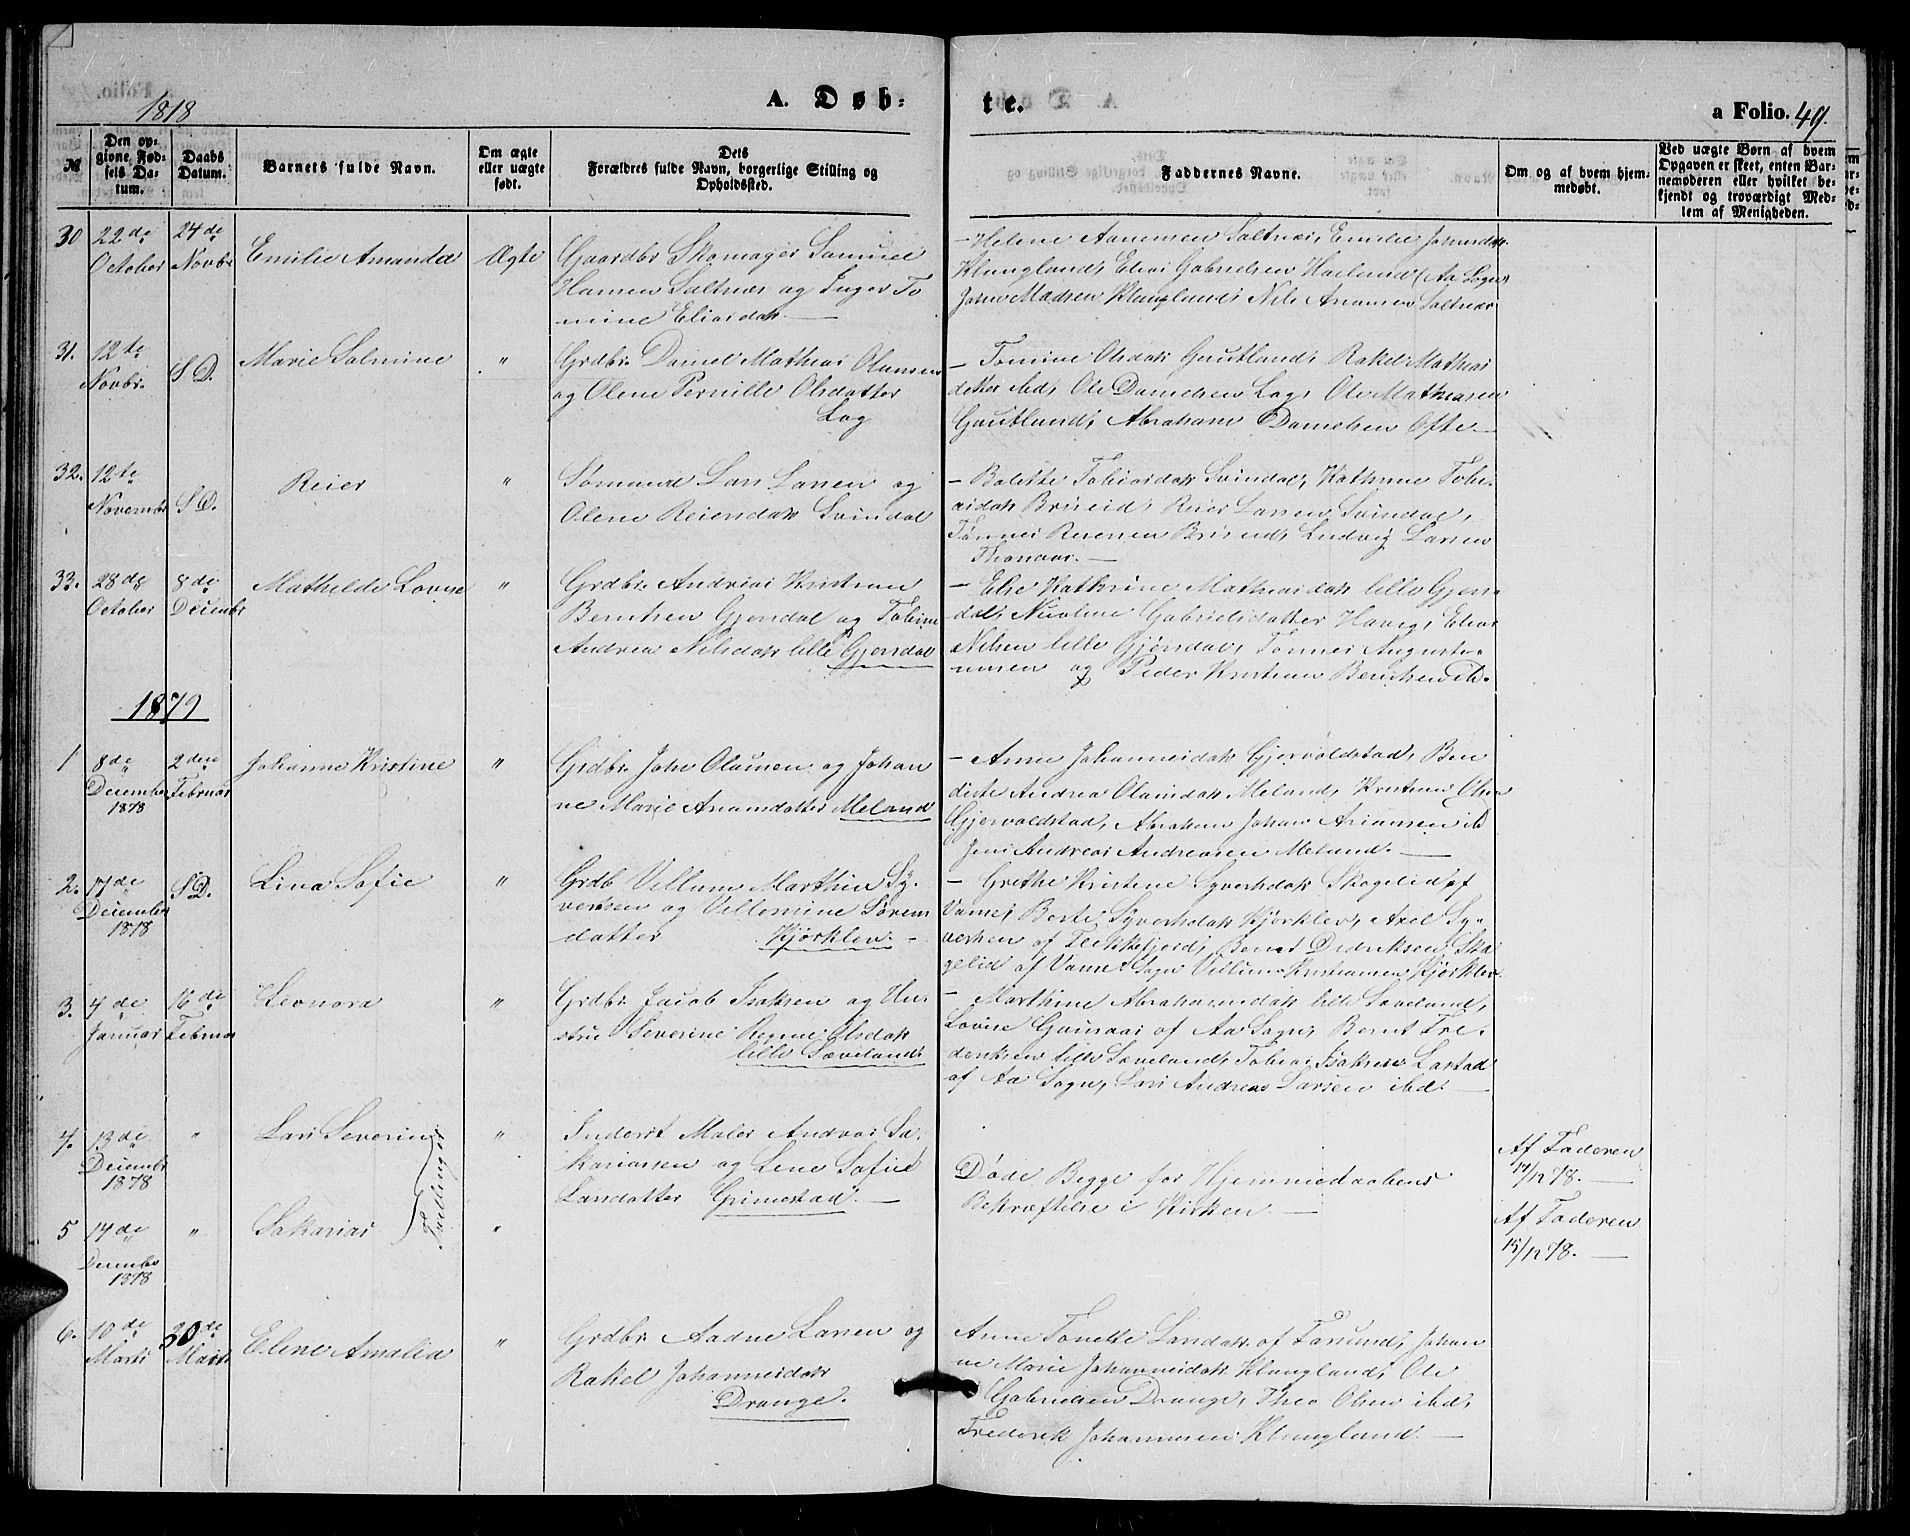 1878
A. Døb-
te.
a Folio. 49.
№
Den op-
givne Fød-
sels Da-
tum.
Daabs
Datum.
Barnets fulde Navn.
Om ægte
eller uægte
født.
Dets
Forældres fulde Navn, borgerlige Stilling og
Opholdssted.
Faddernes Navne.
Om og af hvem hjem-
medøbt.
Ved uægte Børn af hvem
Opgaven er skeet, enten Bar-
nemoderen eller hvilket be-
kjendt og troværdigt Med-
lem af Menigheden.
30 22de October 24de Novbr Emilie Amanda Ægte
Gaardbr Skomager Samuel
Hansen Saltnes og Inger To
mine Eliasdatr
— Helene Aanensen Saltnes, Emilie Jonasdatr
Klungland, Elias Gabrielsen Hœland (Aa Sogn)
John Madsen Klungland, Nils Anansen Saltnes
31. 12te Novbr. S.D. Marie Salmine "
Grdbr. Daniel Mathias Olausen
og Olene Pernille Olsdatter
Log
— Tomine Olsdatr Gautland, Rakel Mathias
datter ibd, Ole Danielsen Log, Ole Mathiasen
Gautland, Abraham Danielsen Ofte —
32. 12te Novembr S.D. Reier "
Sømand Lars Larsen og
Olene Reiersdatr Svindal
— Bolette Tobiasdatr Svindal, Kathrine Tobi-
asdatr Briseid, Reier Larsen Svindal,
Tønnes Reiersen Briseid, Ludvig Larsen
33. 28de October 8de Decembr Mathilde Lovise "
Grdbr. Andreas Kristian
Berntsen Gjendal og Tobine
Andrea Nilsdatr lille Gjendal
— Else Kathrine Mathiasdatr lille Gjen-
dal, Nicoline Gabrielsdatter Haveg, Elias
Nilsen lille Gjendal, Tønnes Augusti-
nusen og Peder Kristian Berntsen ib.
1879
1 8de December 1878 2den Februar Johanne Kristine "
Grdbr. John Olausen og Johan
ne Marie Anansdatter Meland
— Anne Johannesdatr Gjervoldstad, Ben
dicte Andrea Olausdatr Meland, Kristian Olsen
Gjervoldstad, Abraham Johan Ariansen ib
Jens Andreas Andreasen Meland. —
2. 17de December 1878 S.D. Lina Sofie "
Grdb Villum Marthin Sy-
vertsen og Villemine Sørens
datter Kjørklev. —
— Grethe Kristine Syvertsdatr Skogelid af
Vanse, Berte Syvertsdatr Kjørklev, Axel Sy-
vertsen af Flekkefjord, Bernt Didriksen Sko
gelid af Vanse Sogn Villum Kristiansen Kjørklev
3. 4de Januar 16de Februar Leonora "
Grdbr. Jacob Isaksen og Hu-
stru Severine Regine Olsdatr
lille Sæveland
— Marthine Abrahamsdatr lille Sæveland,
Lovise Gaunaas af Aa Sogn, Bernt Fre-
deriksen lille Sæveland, Tobias Isaksen Lastad
af Aa Sogn, Lars Andreas Larsen ibd. —
4. 13de Decembr 1878 " Lars Severin "
Inderst Maler Andreas Sa-
kariassen og Lene Sofie
Larsdatter Grimestad. —
Tvillinger
Døde Begge før Hjemmedaabens
Bekræftelse i Kirken. —
Af Faderen
14/12 78. —
5 14de December 1878 " Sakarias "
Af Faderen
15/12 78. —
6. 10de Marts 30de Marts Elene Amalia "
Grdbr. Aadne Larsen og
Rakel Johannesdatr
Drange.
Anne Tonette Larsdatr af Farsund, Johan
ne Marie Johannesdatr Klungland, Ole
Gabrielsen Drange, Theo Olsen ibd,
Frederik Johannesen Klungland. —